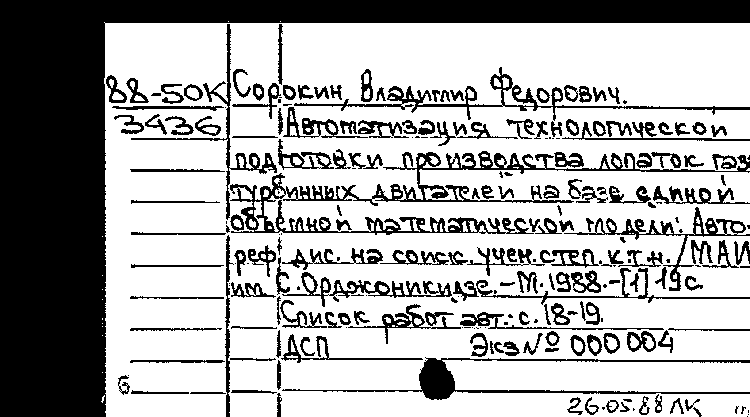 88-50К Сорокин, Владимир Федорович.
3436 Автоматизация технологической
подготовки производства лопаток газо
турбинных двигателей на базе единой
объемной математической модели: Авто-
реф. дис. на соиск. учен. степ. к.т.н. / МАИ
им. С. Орджоникидзе. - М., 1988. - [1], 19 с.
Список работ авт.: с. 18-19.
ДСП Экз № 000004
6
26.05.88 ЛК